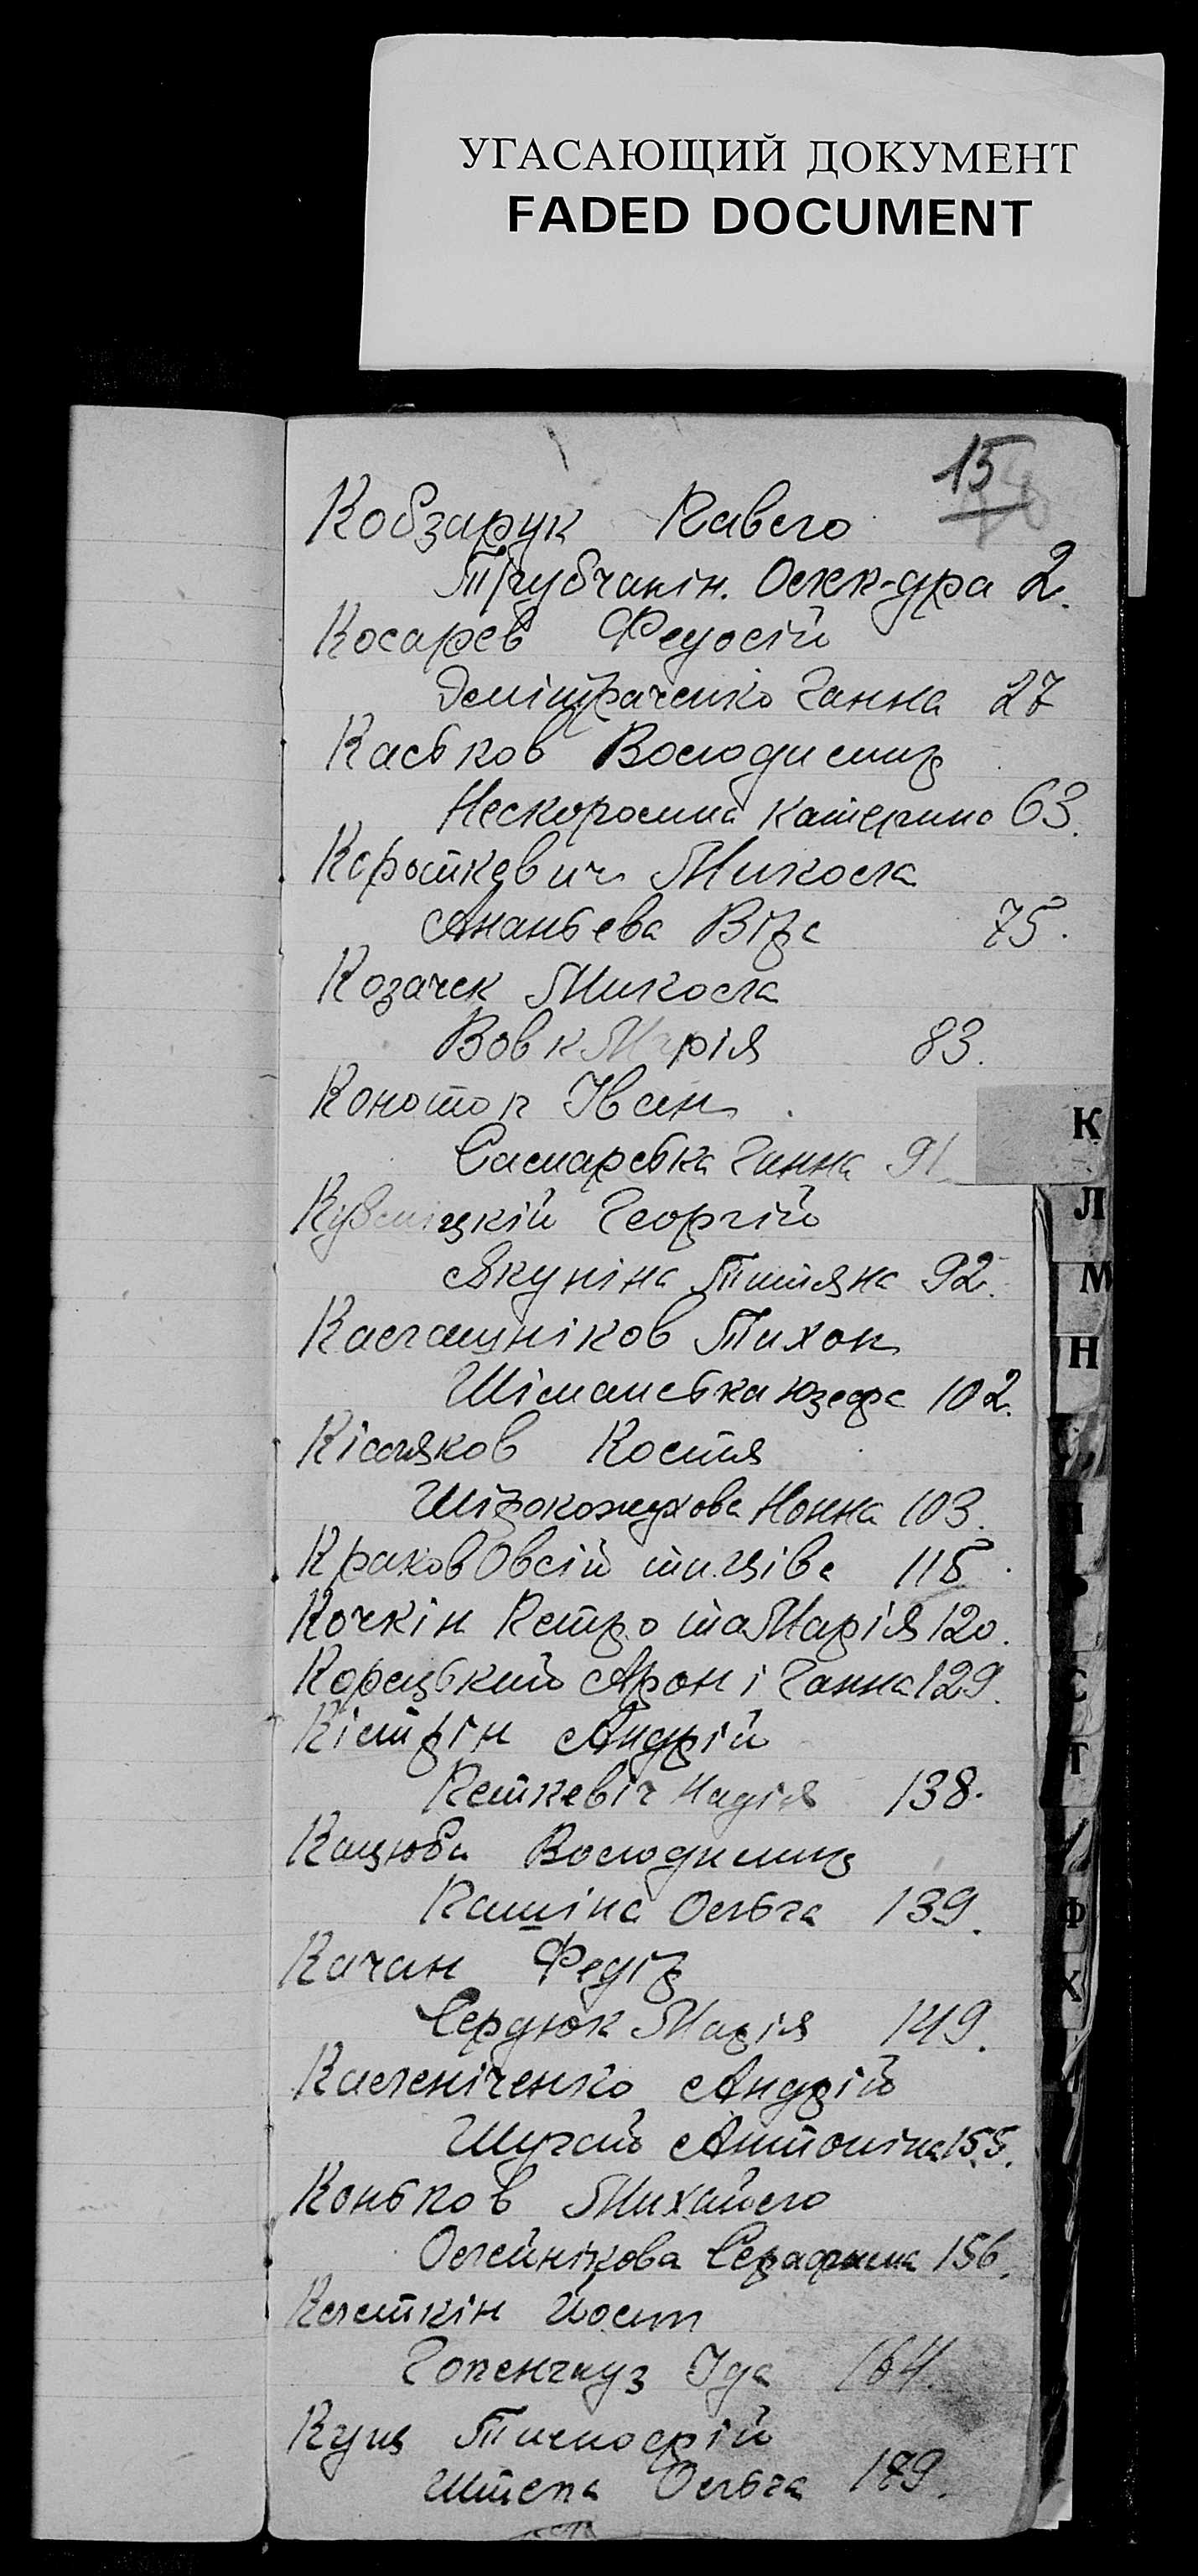 УГАСАЮЩИЙ ДОКУМЕНТ
FADED DOCUMENT
15
Кобзарук Павло
Трубчанін. Олек-дра 2.
Косарев Федосій
Демітраченко Ганна 27
Каськов Володимир
Нескоромна Катерина 63.
Короткевич Микола
Ананьева Віра 75.
Козачек Микола
Вовк Марія 83.
Конотоп Іван
Самарська Ганна 91
Георгій
Якуніна Тетяна 92.
Калашніков Тихон
Шіманська Юзефа 102.
Кісляков Костя
Широкожухова Нонна 103.
Краков Овсій та Ціва 115.
Кочкін Петро та Марія 120.
Корецький Арон і Ганна 129.
Кістрін Андрій
Петкевіч Надія 138.
Кацюба Володимир
Кашіна Ольга 139.
Качан Федір
Сердюк Марія 149.
Калєніченко Андрій
Шугай Антоніна 155.
Коньков Михайло
Олейнікова Серафима 156.
Клєткін Йосип
Гопенгауз Іда 164.
Куц Тимофій
Штепа Ольга 179.
К
Л
М
Н
П
Р
С
Т
Ф
Х